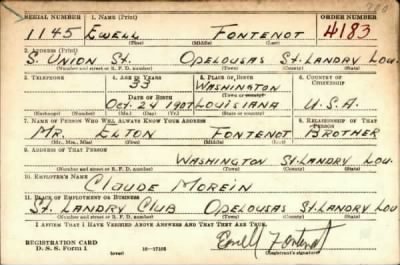 SERIAL NUMBER 1. NAME (Print) ORDER NUMBER
1145 EWELL FONTENOT 4183
(First) (Middle) (Last)
2. ADDRESS (Print)
S. UNION ST. OPELOUSAS ST. LANDRY LOU.
(Number and street or R. F. D. number) (Town) (County) (State)
3. TELEPHONE 4. AGE IN YEARS 5. PLACE OF BIRTH 6. COUNTRY OF CITIZENSHIP
33 WASHINGTON
DATE OF BIRTH (Town or county)
OCT. 24 1907 LOUISIANA U.S.A.
(Exchange) (Number) (Mo.) (Day) (Yr.) (State or country)
7. NAME OF PERSON WHO WILL ALWAYS KNOW YOUR ADDRESS 8. RELATIONSHIP OF THAT PERSON
MR. ELTON FONTENOT BROTHER
(Mr., Mrs., Miss) (First) (Middle) (Last)
9. ADDRESS OF THAT PERSON
WASHINGTON ST. LANDRY LOU.
(Number and street or R. F. D. number) (Town) (County) (State)
10. EMPLOYER'S NAME
CLAUDE MOREIN
11. PLACE OF EMPLOYMENT OR BUSINESS
ST. LANDRY CLUB OPELOUSAS ST. LANDRY LOU
(Number and street or R. F. D. number) (Town) (County) (State)
I AFFIRM THAT I HAVE VERIFIED ABOVE ANSWERS AND THAT THEY ARE TRUE.
REGISTRATION CARD
D. S. S. Form 1 (over) 16—17105 Ewell Fontenot
(Registrant's signature)